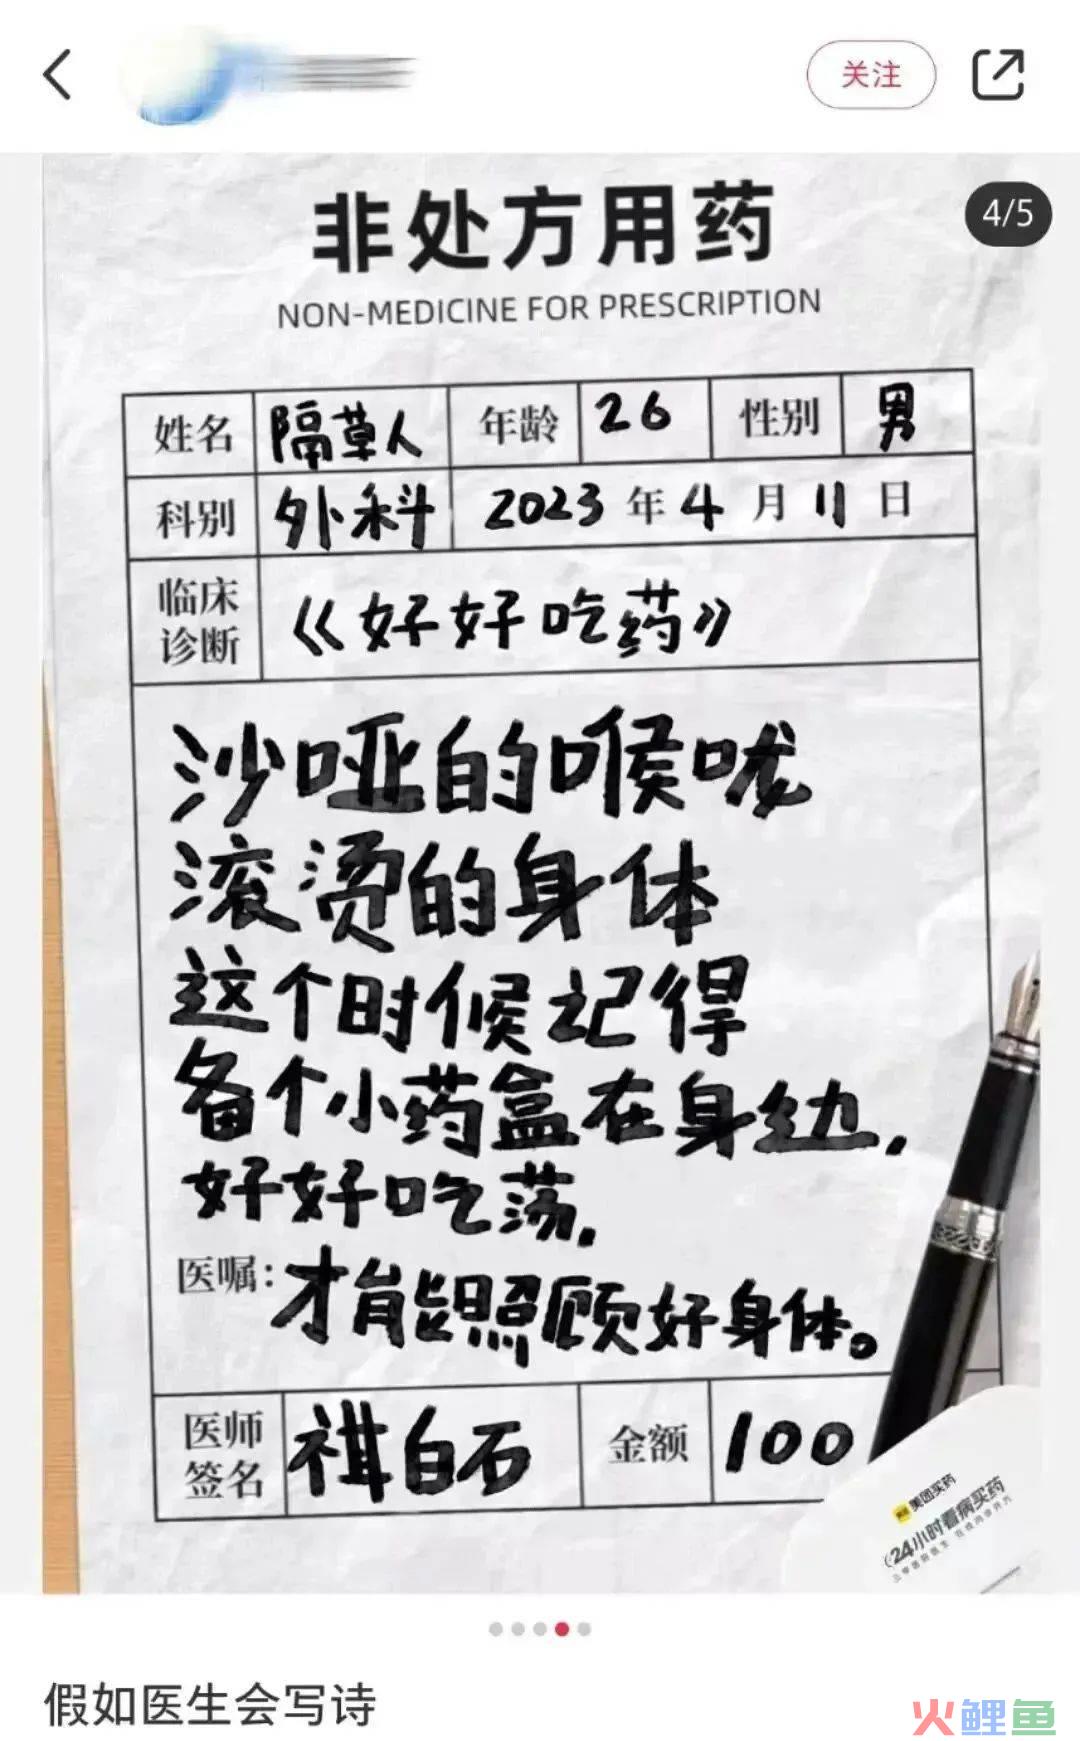 关注
4/5
非处方用药
NON-MEDICINE FOR PRESCRIPTION
姓名 隔草人 年龄 26 性别 男
科别 外科 2023年4月11日
临床诊断 《好好吃药》
沙哑的喉咙
滚烫的身体
这个时候记得
备个小药盒在身边,
好好吃荡,
医嘱: 才能照顾好身体。
医师签名 祺白石 金额 100
美团买药
24小时看病买药
假如医生会写诗
火鲤鱼